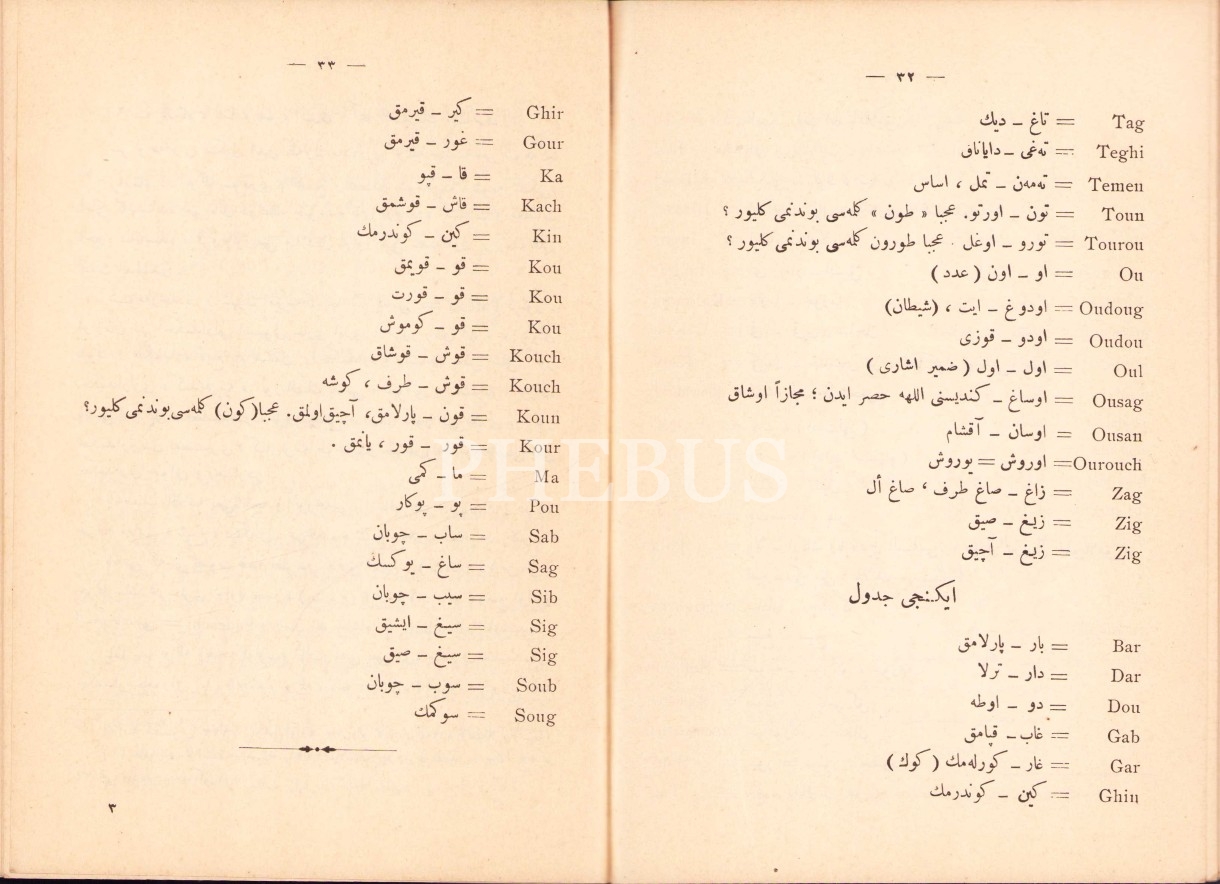 — ٣٢ —
Tag = تاغ – ديك
Teghi = ته‌غی – داياناق
Temen = ته‌مه‌ن – تمل ، اساس
Toun = تون – اورتو. عجبا « طون » كله‌سی بوندنمی كليور ؟
Tourou = تورو – اوغل . عجبا طورون كله‌سی بوندنمی كليور ؟
Ou = او – اون ( عدد )
Oudoug = اودوغ – ايت ، (شيطان)
Oudou = اودو – قوزی
Oul = اول – اول ( ضمير اشاری )
Ousag = اوساغ – كنديسنی اللهه حصر ايدن ؛ مجازاً اوشاق
Ousan = اوسان – آقشام
Ourouch = اوروش = يوروش
Zag = زاغ – صاغ طرف ، صاغ أل
Zig = زيغ – صيق
Zig = زيغ – آچيق
ايكنجی جدول
Bar = بار – پارلامق
Dar = دار – ترلا
Dou = دو – اوطه
Gab = غاب – قپامق
Gar = غار – كورله‌مك ( كوك )
Ghin = كين – كوندرمك
— ٣٣ —
Ghir = كير – قيرمق
Gour = غور – قيرمق
Ka = قا – قپو
Kach = قاش – قوشمق
Kin = كين – كوندرمك
Kou = قو – قويمق
Kou = قو – قورت
Kou = قو – كوموش
Kouch = قوش – قوشاق
Kouch = قوش – طرف ، كوشه
Koun = قون – پارلامق، آچيق‌اولمق. عجبا(كون) كله‌سی‌بوندنمی كليور؟
Kour = قور – قور ، يانمق .
Ma = ما – كمی
Pou = پو – پوكار
Sab = ساب – چوبان
Sag = ساغ – يوكسك
Sib = سيب – چوبان
Sig = سيغ – ايشيق
Sig = سيغ – صيق
Soub = سوب – چوبان
Soug = سوكمك
٣
PHEBUS